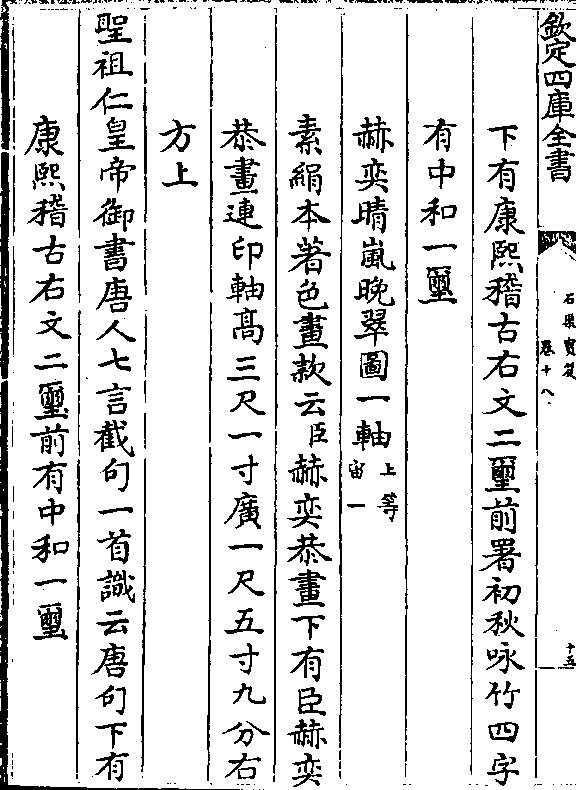 欽定四庫全書
石渠寶笈
卷十八
十五
下有康熙稽古右文二璽前署初秋咏竹四字
有中和一璽
赫奕晴嵐晚翠圖一軸上等宙一
素絹本着色畫款云臣赫奕恭畫下有臣赫奕
恭畫連印軸髙三尺一寸廣一尺五寸九分右
方上
聖祖仁皇帝御書唐人七言截句一首識云唐句下有
康熙稽古右文二璽前有中和一璽